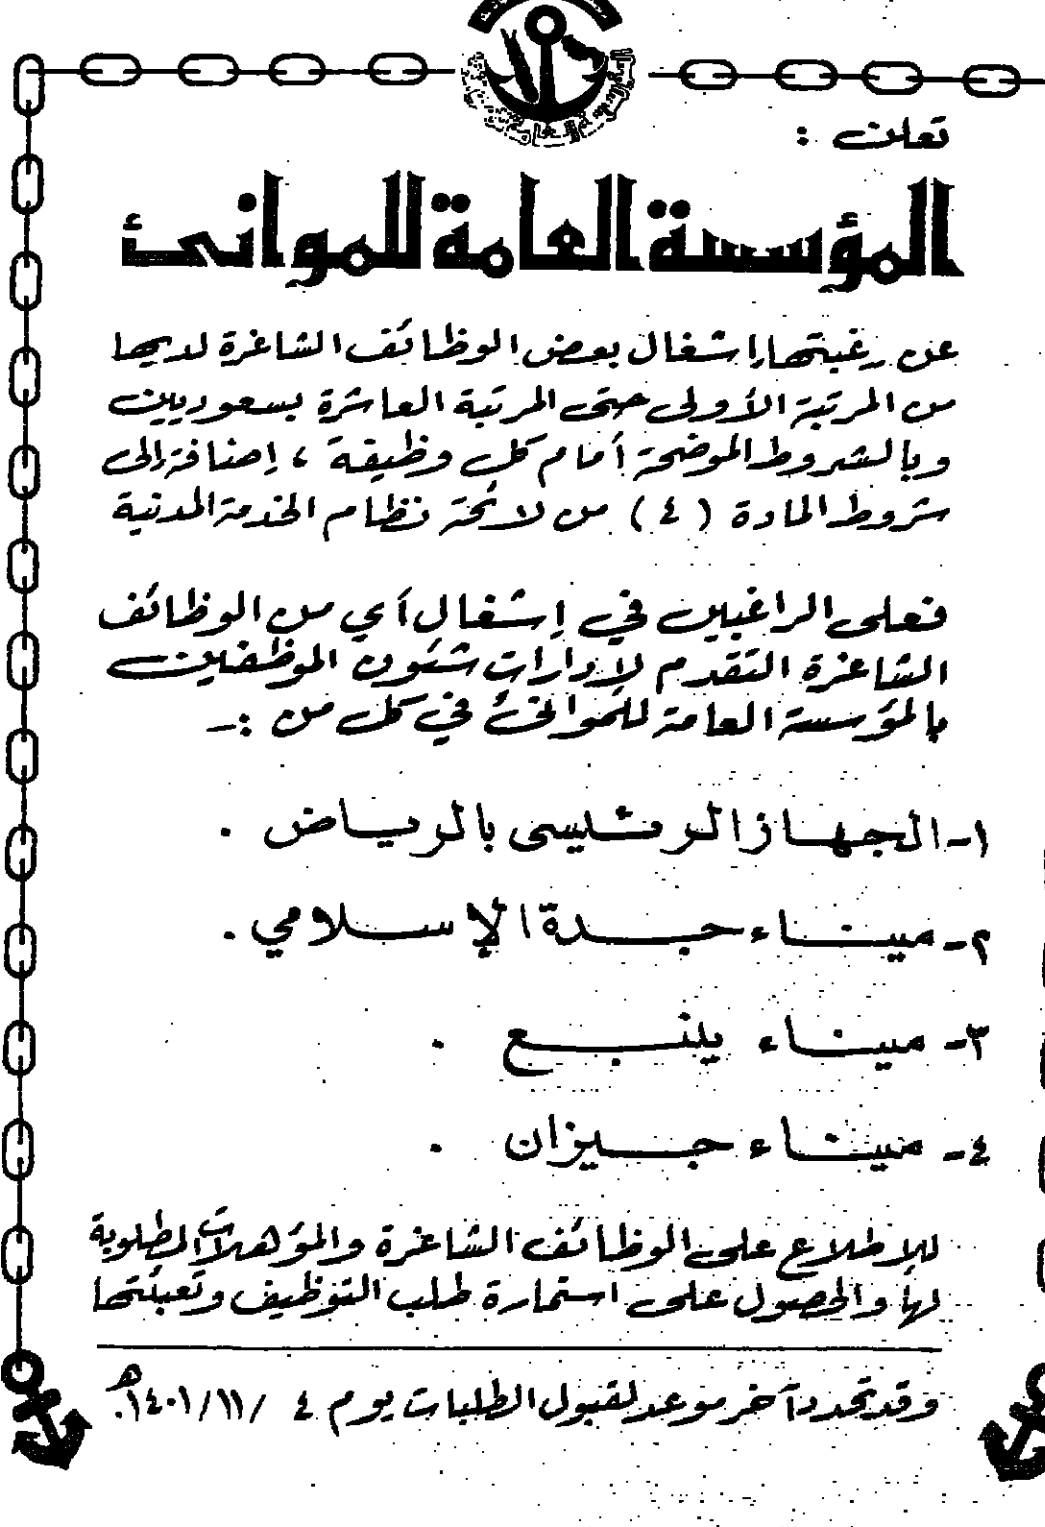 تعلن :
المؤسسة العامة للموانئ
عن رغبتها إشغال بعض الوظائف الشاغرة لديها
من المرتبة الأولى حتى المرتبة العاشرة بسعوديين
وبالشروط الموضحة أمام كل وظيفة ، إضافة إلى
شروط المادة ( ٤ ) من لائحة نظام الخدمة المدنية
فعلى الراغبين في إشغال أي من الوظائف
الشاغرة التقدم لإدارات شئون الموظفين
بالمؤسسة العامة للموانئ في كل من :ـ
١- الجهاز الرئيسى بالرياض .
٢- ميناء جدة الإسلامي .
٣- ميناء ينبع .
٤- ميناء جيزان .
للإطلاع على الوظائف الشاغرة والمؤهلات المطلوبة
لها والحصول على استمارة طلب التوظيف وتعبئتها
وقد تحدد آخر موعد لقبول الطلبات يوم ٤ /١١/١٤٠١هـ.